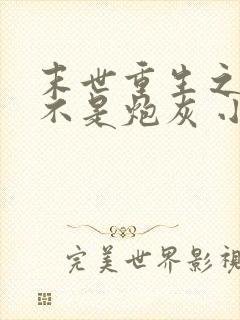 末世重生之
不是炮灰 小
完美世界影視